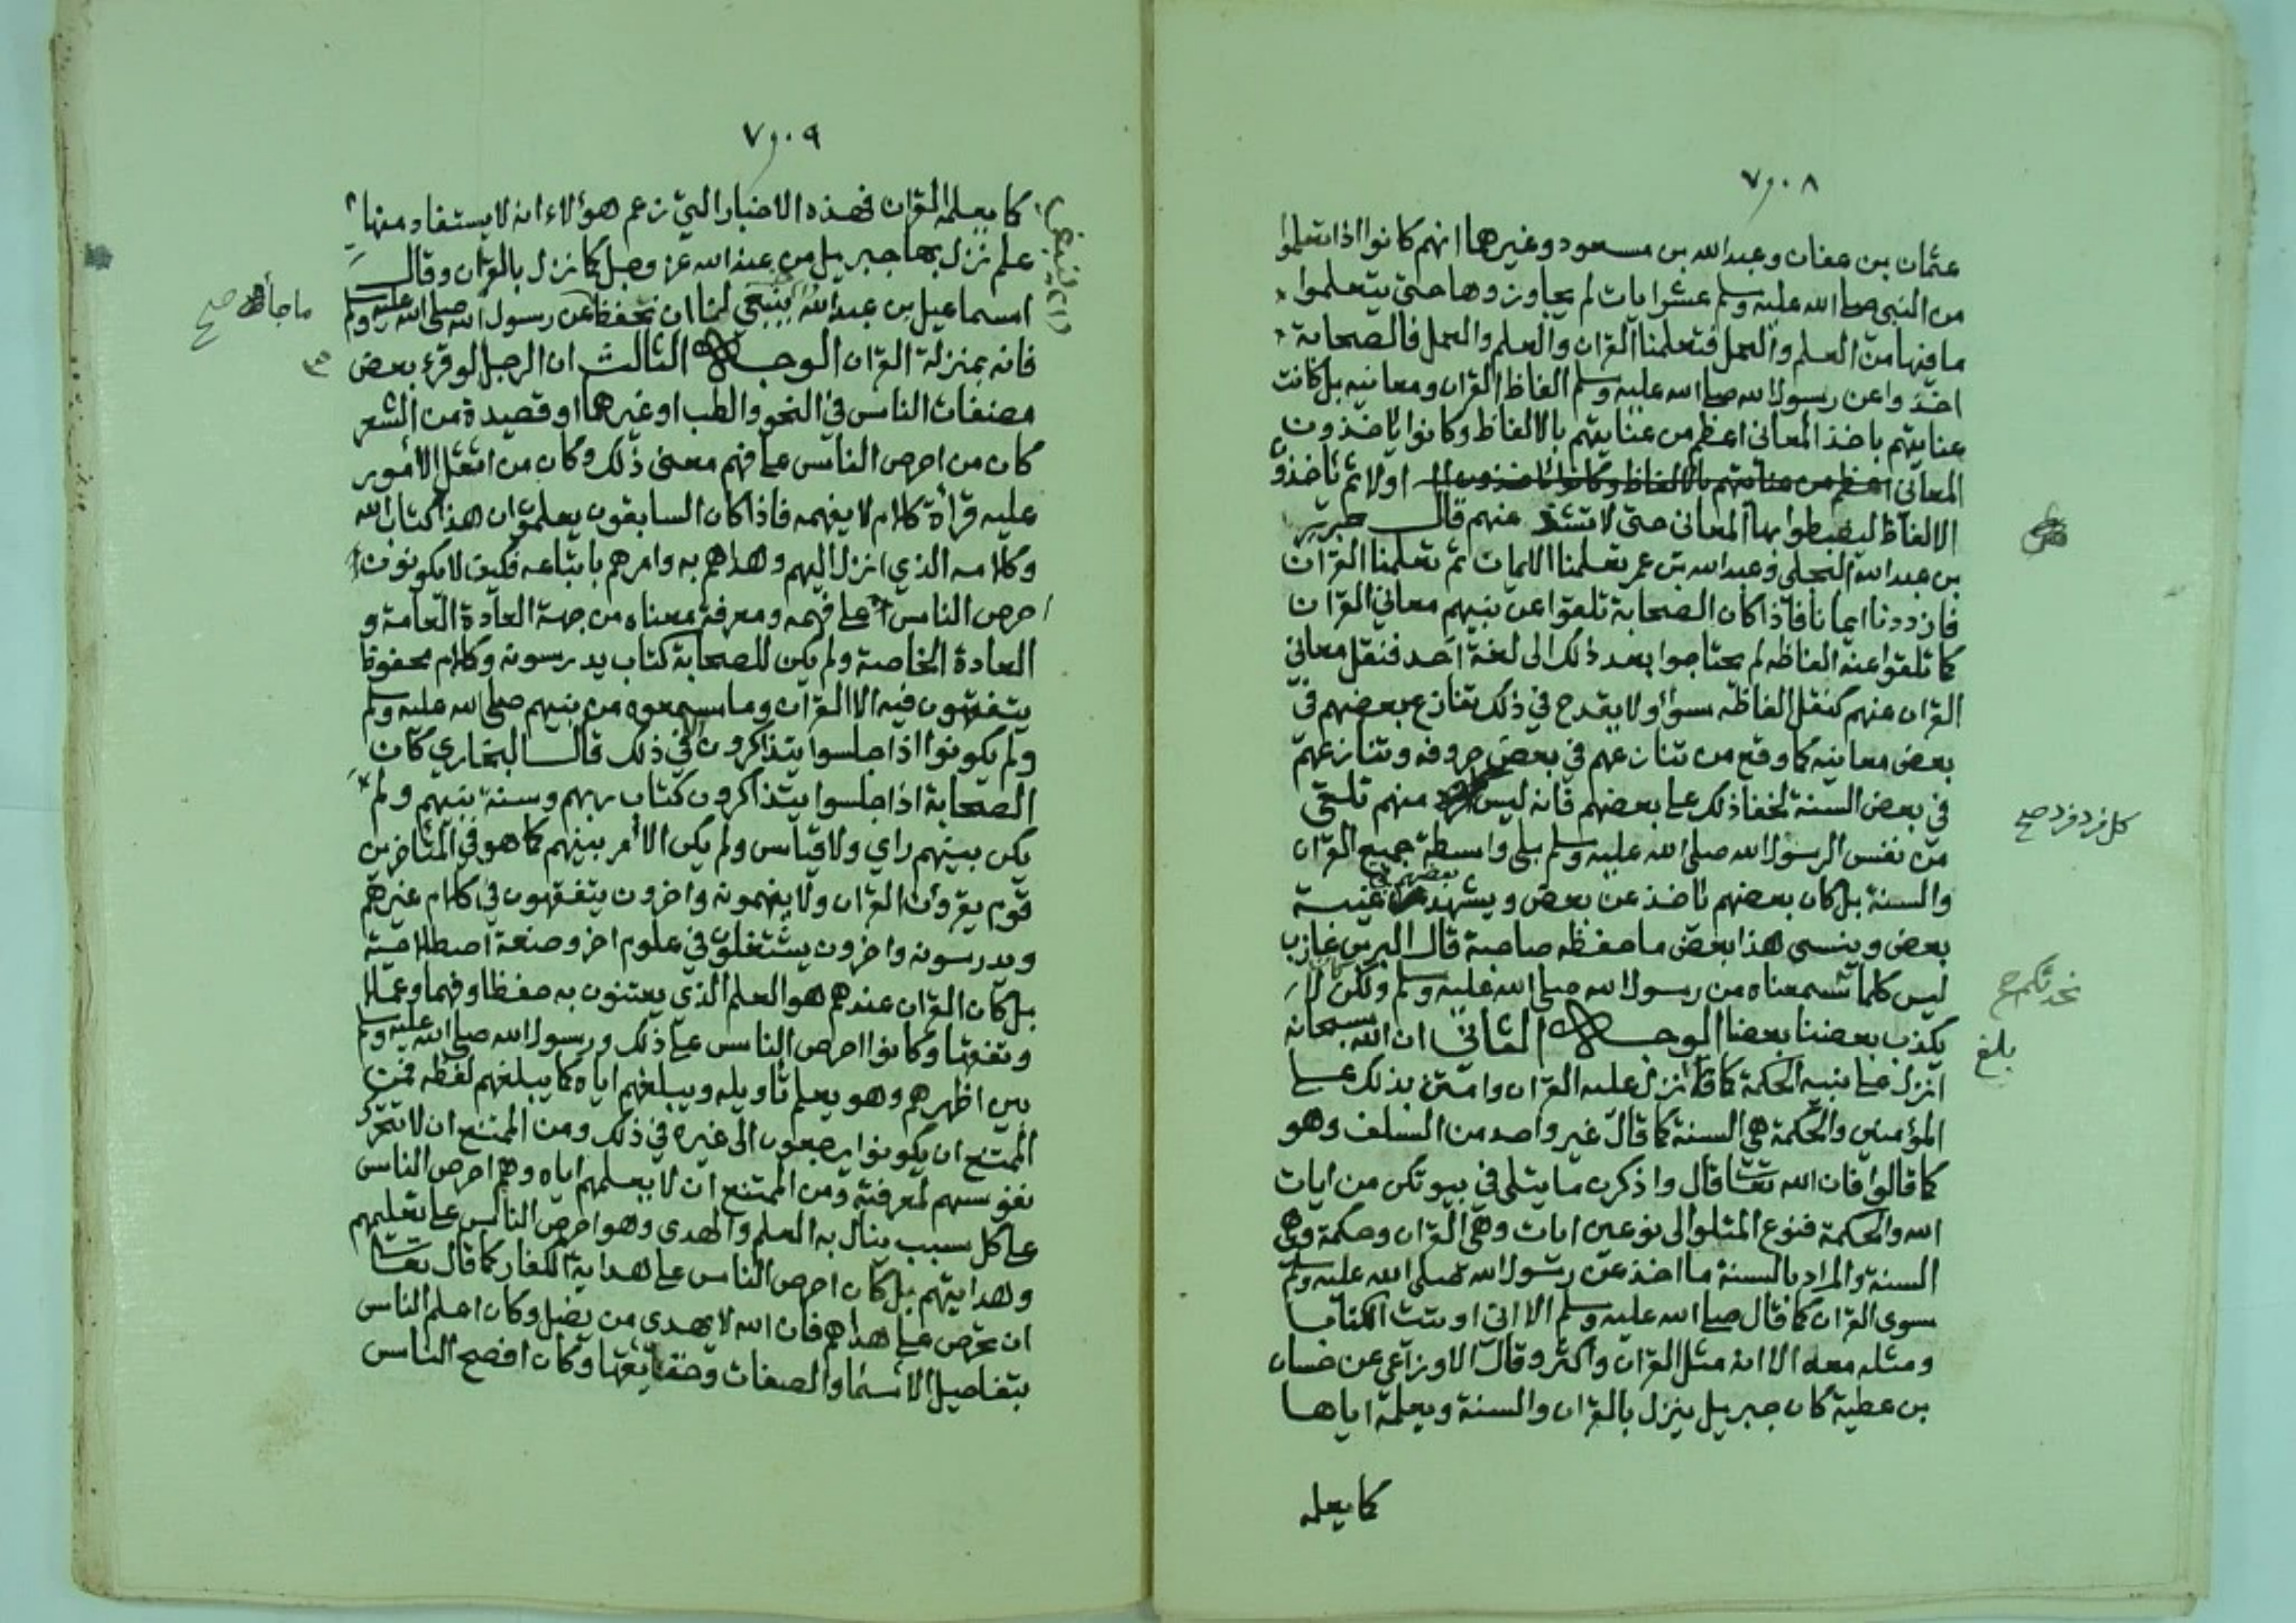 ٧٠٨
عثمان بن عفان وعبد الله بن مسعود وغيرهما انهم كانوا اذا تعلموا
من النبي صلى الله عليه وسلم عشر ايات لم يجاوزوها حتى يتعلموا
ما فيها من العلم والعمل فتعلمنا القران والعلم والعمل فالصحابة
اخذوا عن رسول الله صلى الله عليه وسلم الفاظ القران ومعانيه بل كانت
عنايتهم باخذ المعاني اعظم من عنايتهم بالالفاظ وكانوا ياخذون
المعاني اولا ثم ياخذون
الالفاظ ليضبطوا بها المعاني حتى لا تشذ عنهم قال
بن عبد الله البجلي وعبد الله بن عمر تعلمنا الايمان ثم تعلمنا القران
فازددنا ايمانا فاذا كان الصحابة تلقوا عن نبيهم معاني القران
كما تلقوا عنه الفاظه لم يحتاجوا بعد ذلك الى لغة احد فنقل معاني
القران عنهم كنقل الفاظه سوأ ولا يقدح في ذلك تنازع بعضهم في
بعض معانيه كما وقع من تنازعهم في بعض حروفه وتنازعهم
في بعض السنة لخفا ذلك على بعضهم فانه ليس منهم تلقى
كل فرد فرد صح
من نفس الرسول الله صلى الله عليه وسلم بلى واسطة جميع القران
والسنة بل كان بعضهم ياخذ عن بعض ويشهد بعضهم في غيبة
بعض وينسى هذا بعض ما حفظه صاحبه قال البر بن عازب
ليس كلما نسمعناه من رسول الله صلى الله عليه وسلم ولكن لا
نحدثكم صح
يكذب بعضنا بعضا الوجه الثاني ان الله سبحانه
بلغ
انزل على نبيه الحكمة كما انزل عليه القران وامتن بذلك على
المؤمنين والحكمة هي السنة كما قال غير واحد من السلف وهو
كما قالوا فان الله تعا قال واذكرن ما يتلى في بيوتكن من ايات
الله والحكمة فنوع المتلو الى نوعين ايات وهي القران وحكمة وهي
السنة والمراد بالسنة ما اخذ عن رسول الله صلى الله عليه وسلم
سوى القران كما قال صلى الله عليه وسلم الا اني اوتيت الكتاب
ومثله معه الا انه مثل القران واكثر وقال الاوزاعي عن حسان
بن عطية كان جبريل ينزل بالقران والسنة ويعلمه اياها
كما يعلمه
٧٠٩
كما يعلمه القران فهذه الاخبار التي زعم هؤلاء انه لا يستفاد منها
علم نزل بها جبريل من عند الله عز وجل كما نزل بالقران وقال
اسماعيل بن عبد الله ينبغي لنا ان نحفظ عن رسول الله صلى الله عليه وسلم
(١) (ينبغي)
ما جأ صح
فانه بمنزلة القران الوجه الثالث ان الرجل لو قرء بعض
مصنفات الناس في النحو والطب او غيرهما او قصيدة من الشعر
كان من احرص الناس على فهم معنى ذلك وكان من اثقل الامور
عليه قرأة كلام لا يفهمه فاذا كان السابقون يعلمون ان هذا كتاب الله
وكلامه الذي انزل اليهم وهداهم به وامرهم باتباعه فكيف لا يكونون
احرص الناس على فهمه ومعرفة معناه من جهة العادة العامة و
العادة الخاصة ولم يكن للصحابة كتاب يدرسونه وكلام محفوظ
يتفقهون فيه الا القران وما سمعوه من نبيهم صلى الله عليه وسلم
ولم يكونوا اذا جلسوا يتذاكرون في ذلك قال البخاري كان
الصحابة اذا جلسوا يتذاكرون كتاب ربهم وسنة نبيهم ولم
يكن بينهم راي ولا قياس ولم يكن الامر بينهم كما هو في المتأخرين
قوم يقرؤن القران ولا يفهمونه واخرون يتفقهون في كلام غيرهم
ويدرسونه واخرون يشتغلون في علوم اخر وصنعة اصطلاحية
بل كان القران عندهم هو العلم الذي يعتنون به حفظا وفهما وعملا
وتفقها وكانوا احرص الناس على ذلك ورسول الله صلى الله عليه وسلم
بين اظهرهم وهو يعلم تأويله ويبلغهم اياه كما يبلغهم لفظه فمن
الممتنع ان يكونوا يرجعون الى غيره في ذلك ومن الممتنع ان لا تتحرك
نفوسهم لمعرفته ومن الممتنع ان لا يعلمهم اياه وهم احرص الناس
على كل سبب ينال به العلم والهدى وهو احرص الناس على تعليمهم
وهدايتهم بل كان احرص الناس على هداية الكفار كما قال تعا
ان تحرص على هداهم فان الله لا يهدى من يضل وكان اعلم الناس
بتفاصيل الاسما والصفات وحقايقها وكان افصح الناس